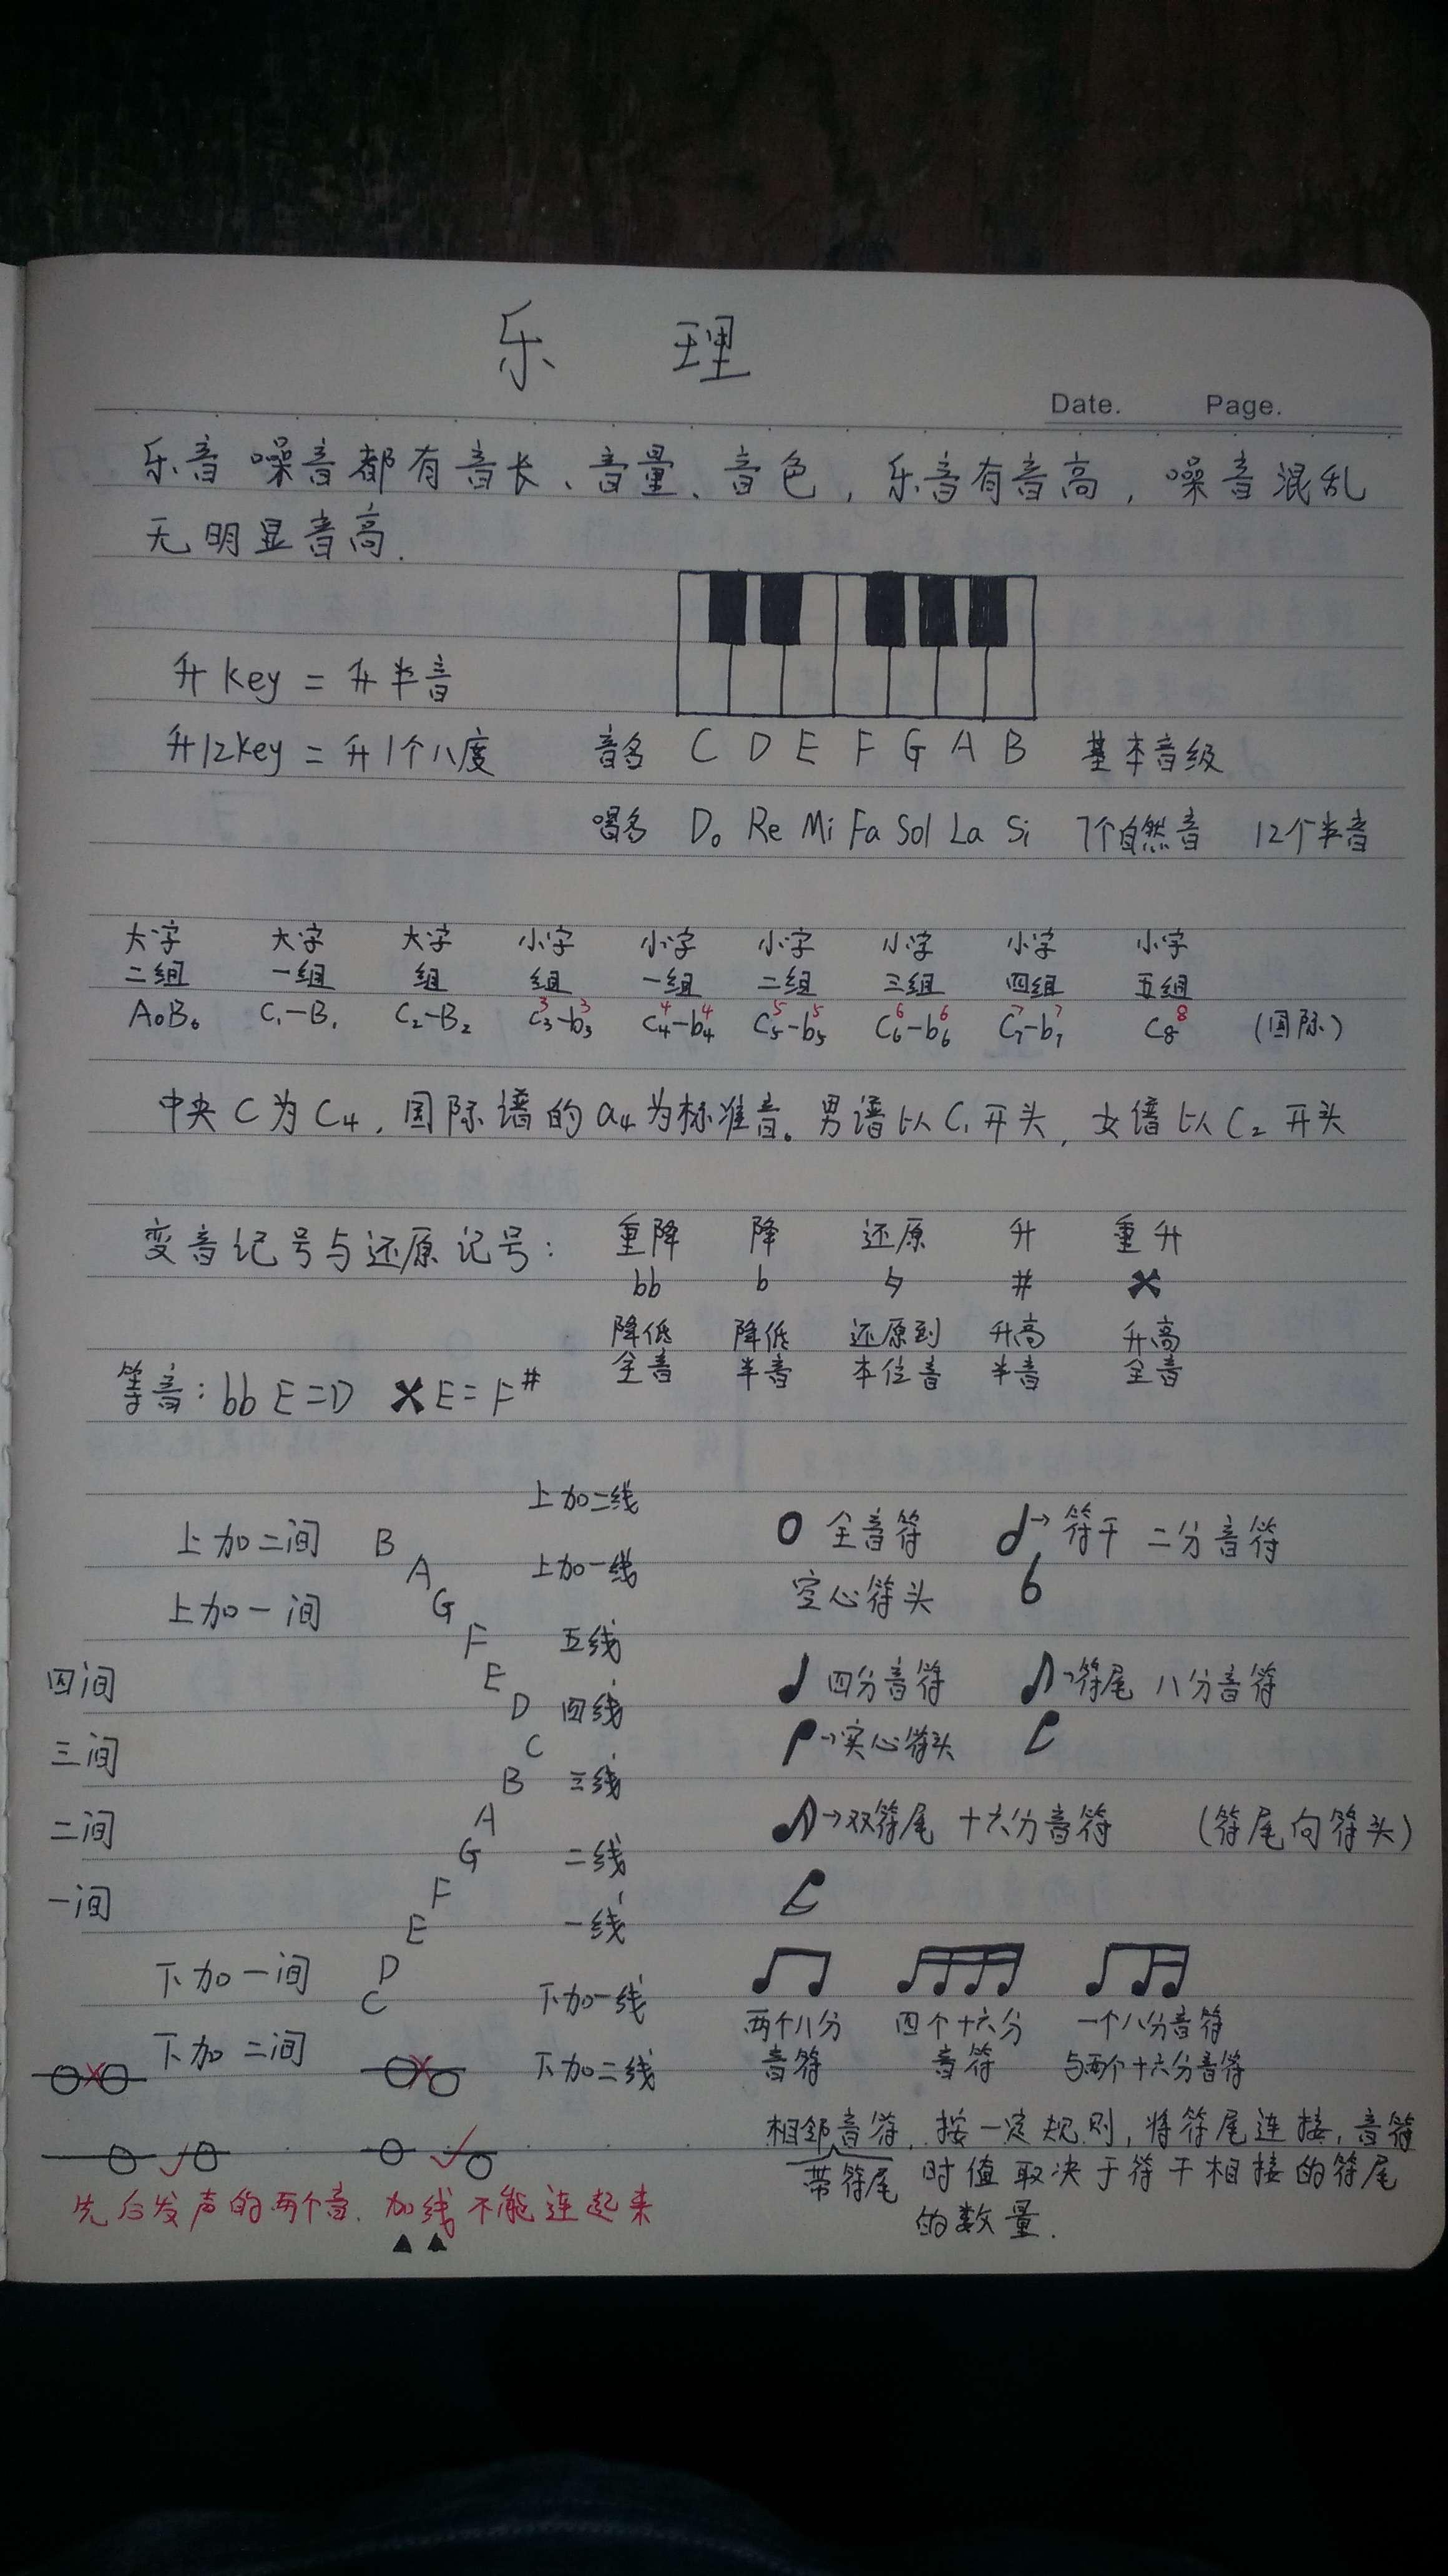 乐 理
Date. Page.
乐音 噪音都有音长、音量、音色，乐音有音高，噪音混乱
无明显音高.
升key = 升半音
升12key = 升1个八度
音名 C D E F G A B 基本音级
唱名 Do Re Mi Fa Sol La Si 7个自然音 12个半音
大字 大字 大字 小字 小字 小字 小字 小字 小字
二组 一组 组 组 一组 二组 三组 四组 五组
A₀B₀ C₁-B₁ C₂-B₂ c₃³-b₃³ c₄⁴-b₄⁴ c₅⁵-b₅⁵ c₆⁶-b₆⁶ c₇⁷-b₇⁷ c₈⁸ (国际)
中央C为C₄，国际谱的a₄为标准音。男谱以C₁开头，女谱以C₂开头
变音记号与还原记号：
重降 降 还原 升 重升
bb b ♮ # ×
降低 降低 还原到 升高 升高
全音 半音 本位音 半音 全音
等音：bbE=D ×E=F#
上加二线
上加二间 B
A 上加一线
上加一间 G
F 五线
四间 E
D 四线
三间 C
B 三线
二间 A
G 二线
一间 F
E 一线
下加一间 D
C 下加一线
下加二间
下加二线
先后发声的两个音，加线不能连起来
全音符 →符干 二分音符
空心符头
四分音符 →符尾 八分音符
→实心符头
→双符尾 十六分音符 (符尾向符头)
两个八分 四个十六分 一个八分音符
音符 音符 与两个十六分音符
相邻音符，按一定规则，将符尾连接，音符
带符尾 时值取决于符干相接的符尾
的数量.